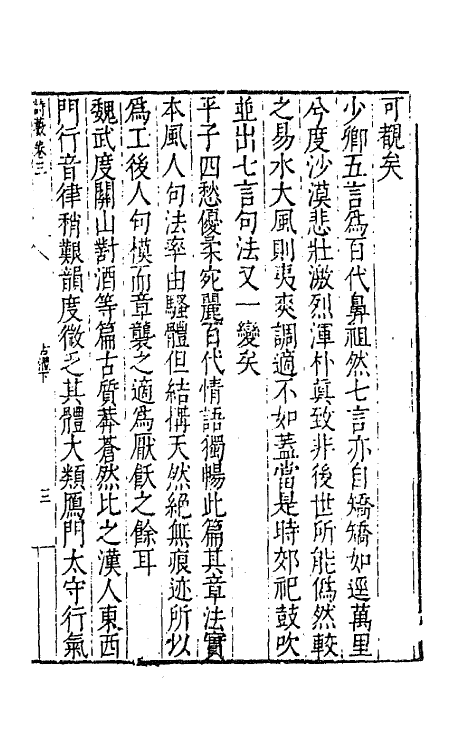 可觀矣
少卿五言爲百代鼻祖然七言亦自矯矯如逕萬里
兮度沙漠悲壯激烈渾朴眞致非後世所能僞然較
之易水大風則夷爽調適不如葢當是時郊祀鼓吹
並出七言句法又一變矣
平子四愁優柔宛麗百代情語獨暢此篇其章法實
本風人句法率由騷體但結搆天然絶無痕迹所以
爲工後人句模而章襲之適爲厭飫之餘耳
魏武度關山對酒等篇古質莽蒼然比之漢人東西
門行音律稍艱韻度微乏其體大類鴈門太守行氣
詩藪卷三 古體下 三